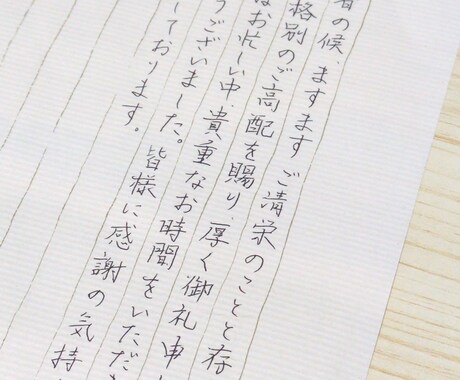 の候、ますますご清栄のことと存
格別のご高配を賜り、厚く御礼申し
なお忙しい中、貴重なお時間をいただ
うございました。皆様に感謝の気持
しております。